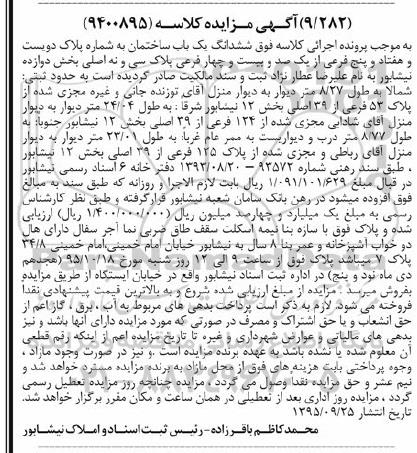 (۹/۲۸۲) آگهی مزایده کلاسه (۹۴۰۰۸۹۵)
به موجب پرونده اجرائی کلاسه فوق ششدانگ یک باب ساختمان به شماره پلاک دویست
و هفتاد و پنج فرعی از یک صد و بیست و چهار فرعی پلاک سی و نه اصلی بخش دوازده
نیشابور به نام علیرضا عطار نژاد ثبت و سند مالکیت صادر گردیده است به حدود ثبتی:
شمالا به طول ۸/۲۷ متر دیوار به دیوار منزل آقای توزنده جانی و غیره مجزی شده از
پلاک ۵۳ فرعی از ۳۹ اصلی بخش ۱۲ نیشابور شرقا : به طول ۲۴/۰۴ متر دیوار به دیوار
منزل آقای شادابی مجزی شده از ۱۲۴ فرعی از ۳۹ اصلی بخش ۱۲ نیشابور جنوبا: به
طول ۸/۷۷ متر درب و دیواریست به ممر عام غربا: به طول ۲۳/۰۱ متر دیوار به دیوار
منزل آقای رباطی و مجزی شده از پلاک ۱۲۵ فرعی از ۳۹ اصلی بخش ۱۲ نیشابور
، طبق سند رهنی شماره ۹۳۵۷۲ – ۱۳۹۳/۰۸/۲۰ دفتر خانه ۶ اسناد رسمی نیشابور
در قبال مبلغ ۱/۰۹۱/۱۰۱/۶۲۹ ریال بابت لازم الاجرا و روزانه که طبق سند به مبالغ
فوق افزوده میشود در رهن بانک سامان شعبه نیشابور قرارگرفته و طبق نظر کارشناس
رسمی به مبلغ یک میلیارد و چهارصد میلیون ریال (۱/۴۰۰/۰۰۰/۰۰۰ ریال) ارزیابی
شده و پلاک فوق با سازه بنا نیمه اسکلت سقف طاق ضربی نما آجر سفال دارای هال
دو خواب آشپزخانه و عمر بنا ۸ سال به نشانی نیشابور خیابان امام خمینی امام خمینی ۳۴/۸
پلاک ۷ میباشد پلاک فوق از ساعت ۹ الی ۱۲ روز شنبه مورخ ۹۵/۱۰/۱۸ (هجدهم
دی ماه نود و پنج) در اداره ثبت اسناد نیشابور واقع در خیابان ایستگاه از طریق مزایده
بفروش میرسد . مزایده از مبلغ ارزیابی شده شروع و به بالاترین قیمت پیشنهادی نقدا
فروخته می شود. لازم به ذکر است پرداخت بدهی های مربوط به آب، برق ، گاز اعم از
حق انشعاب و یا حق اشتراک و مصرف در صورتی که مورد مزایده دارای آنها باشد و نیز
بدهی های مالیاتی و عوارض شهرداری و غیره تا تاریخ مزایده اعم از اینکه رقم قطعی
آن معلوم شده یا نشده باشد به عهده برنده مزایده است .و نیز در صورت وجود مازاد ،
وجوه پرداختی بابت هزینه های فوق از محل مازاد به برنده مزایده مسترد خواهد شد و
نیم عشر و حق مزایده نقدا وصول می گردد. مزایده چنانچه روز مزایده تعطیل رسمی
گردد ، مزایده روز اداری بعد از تعطیلی در همان ساعت و مکان مقرر برگزار خواهد شد.
تاریخ انتشار ۱۳۹۵/۰۹/۲۵
محمدکاظم باقرزاده - رئیس ثبت اسناد و املاک نیشابور